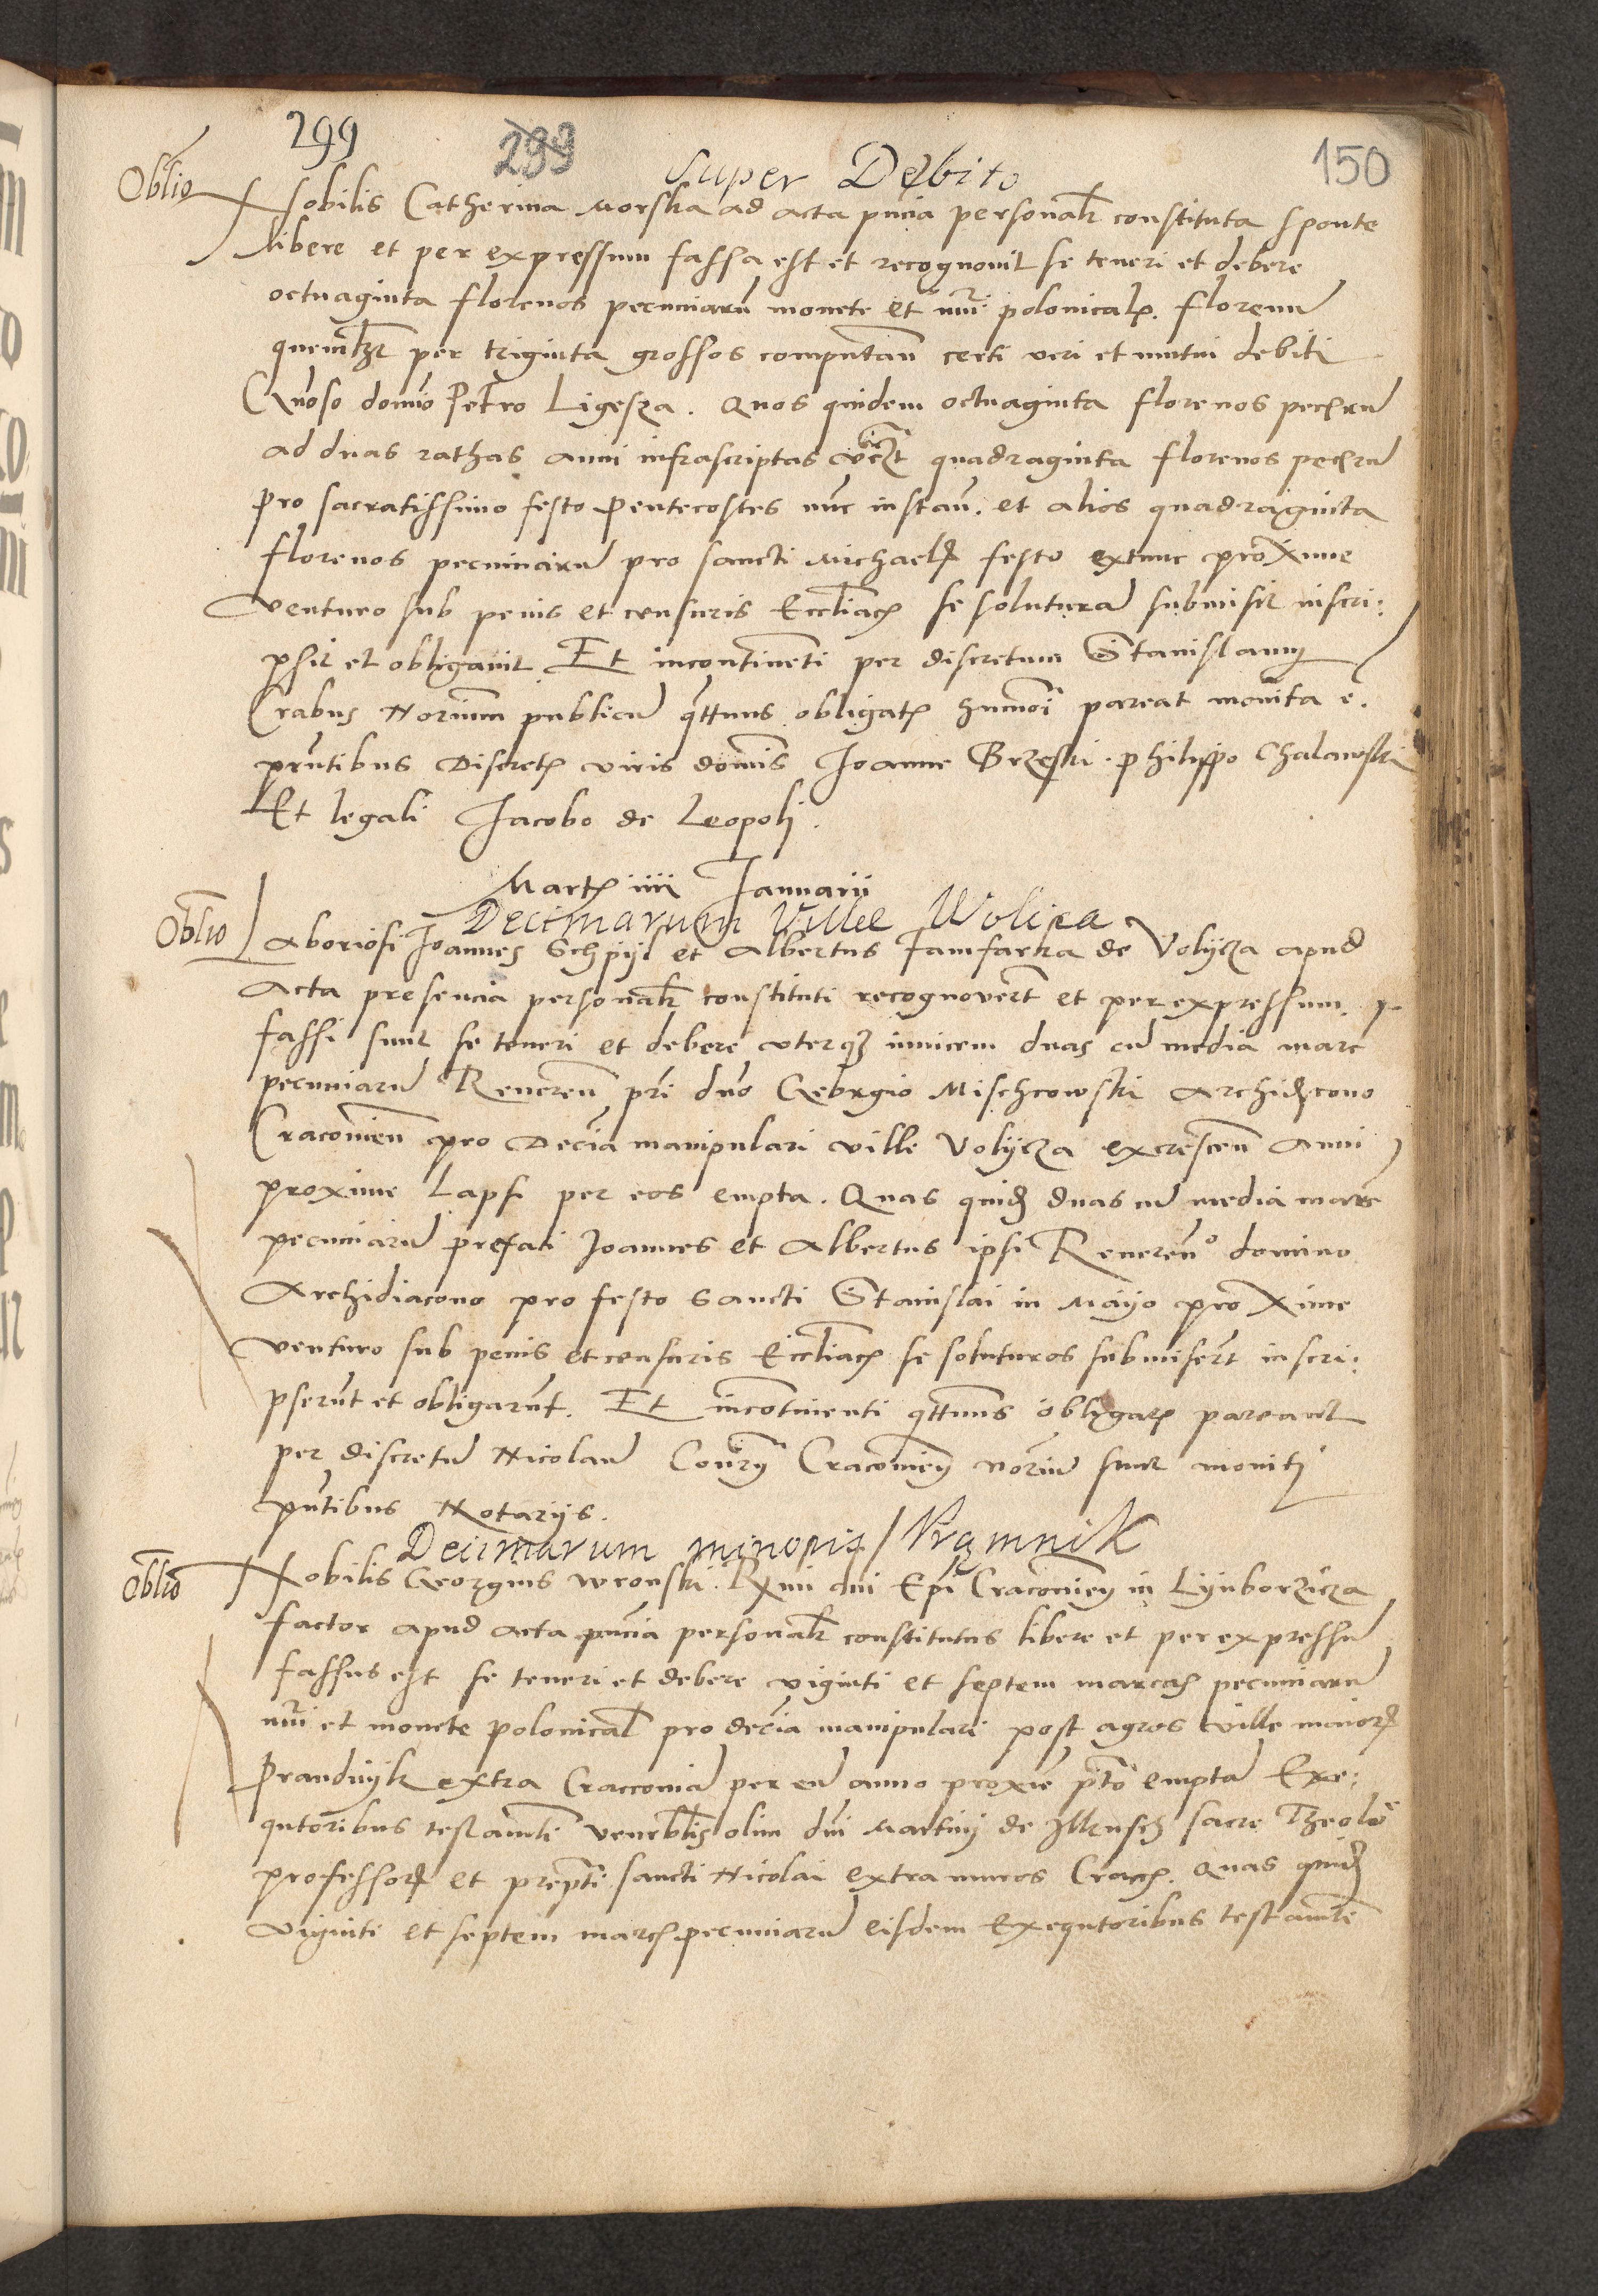 299 299 150
super Debito
Oblio Nobilis Catherina Morska ad acta pñcia personalr constituta sponte
libere et per expressum fassa est et recognovit se teneri et debere
octuaginta florenos pecuniarũ monete et nũi polonicalr. florenũ
quemlibet per triginta grossos computañ certi veri et mutui debiti
Gñoso domĩo Petro Ligesza. Quos quidem octuaginta florenos pecũrũ
ad duas rathas anni infrascriptas videlicet quadraginta florenos pecũrũ
pro sacratissimo festo Pentecostes nũc instañ. et alios quadraginta
florenos pecuniarũ pro sancti Michaelis festo extunc proxime
venturo sub penis et censuris Ecclĩacis se soluturã submisit inscri:
psit et obligavit. Et incontinẽti per discretum Stanislaum
Crabus Notarium publicũ q̃ttenus obligatis hmõi pareat monita ẽ.
pñtibus Discretis viris domĩs Joanne Brzeski. Philippo Chalawski
Et legali Jacobo de Leopoli.
Martis iiii Januarii
Decimarum Villae Wolica
Oblio Laboriosi Joannes Schpijl et Albertus Jamfarka de Volijcza apud
Acta presencia personalr constituti recognoverũt et per expressum
fassi sunt se teneri et debere uterq̃ invicem duas cũ media marc
pecuniarũ Revereñ pr̃i dño Georgio Mischcowski Archidiacono
Cracovieñ pro Decĩa manipulari ville Volijcza excresceñ Anni
proxime Lapsi per eos empta. Quas quidẽ duas cũ media marc
pecuniarũ prefati Joannes et Albertus ipsi Revereñ° domino
Archidiacono pro festo Sancti Stanislai in Maijo proxime
venturo sub penis et censuris Ecclĩacis se soluturos submiserũt inscri:
pserũt et obligarũt. Et incõtinenti q̃ttenus obligatis pareant
per discretũ Nicolaũ Cracovieñ notariũ sunt moniti
pñtibus Notarijs.
Decimarum minoris / Prądnik
Oblio Nobilis Georgius Wronski. Rxmi dñi Epĩ Cracovieñ in Lijuborzicza
factor apud acta pñcia personalr constitutus libere et per expressũ
fassus est se teneri et debere viginti et septem marcas pecuniarũ
nũi et monete polonical pro decĩa manipulari post agros ville maioris
Prandnijk extra Cracoviã per eũ anno proxĩe pr̃to emptã Exe:
qutoribus testamẽti venerblĩs olim dñi Martini de Ilkusch sacre Theolõ
professoris et prep̃ti sancti Nicolai extra muros Cracõ. Quas quidẽ
viginti et septem marcas pecuniarũ eisdem Exequtoribus testamẽti